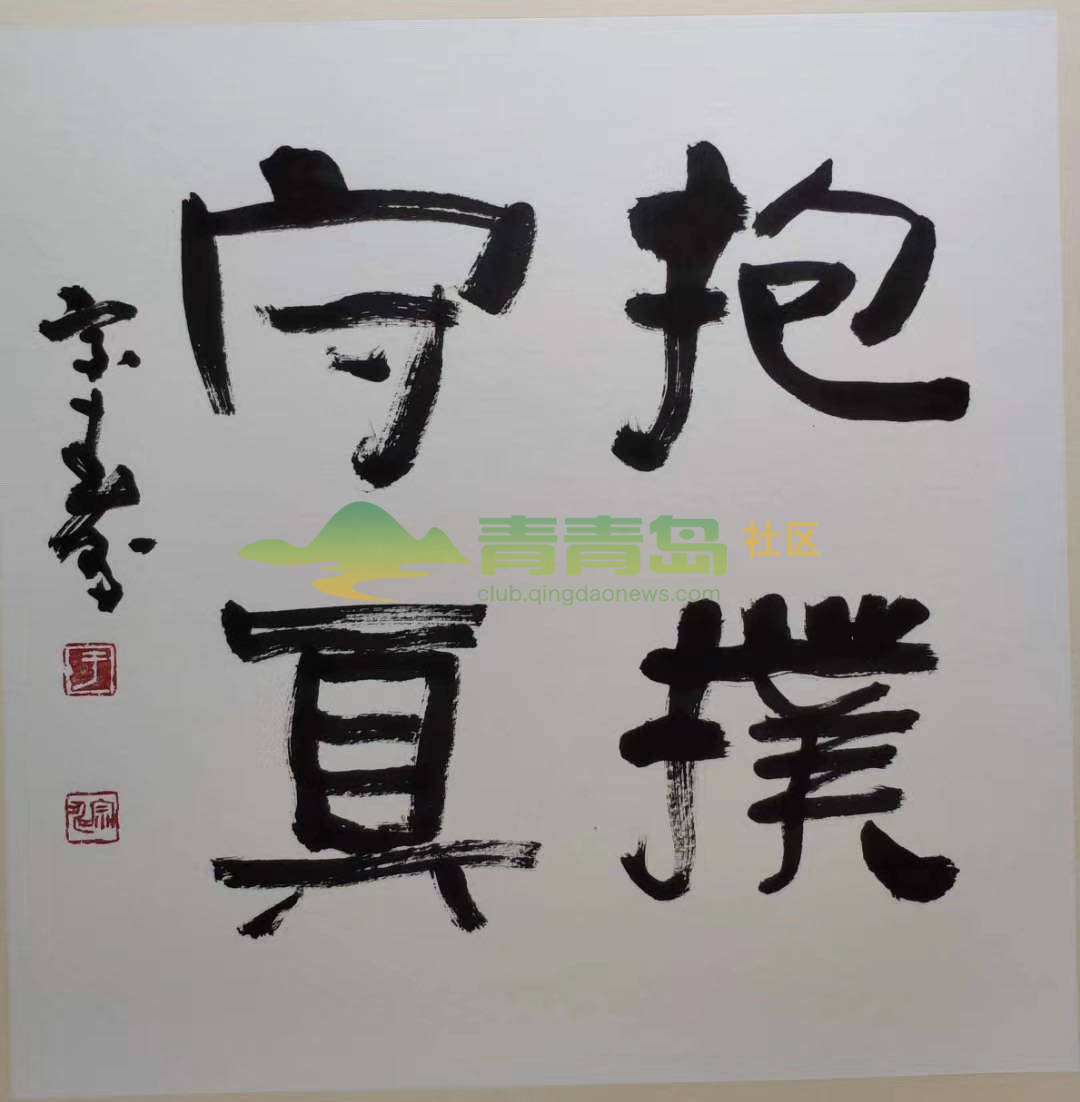 抱撲
守真
宗
青青岛社区
club.qingdaonews.com